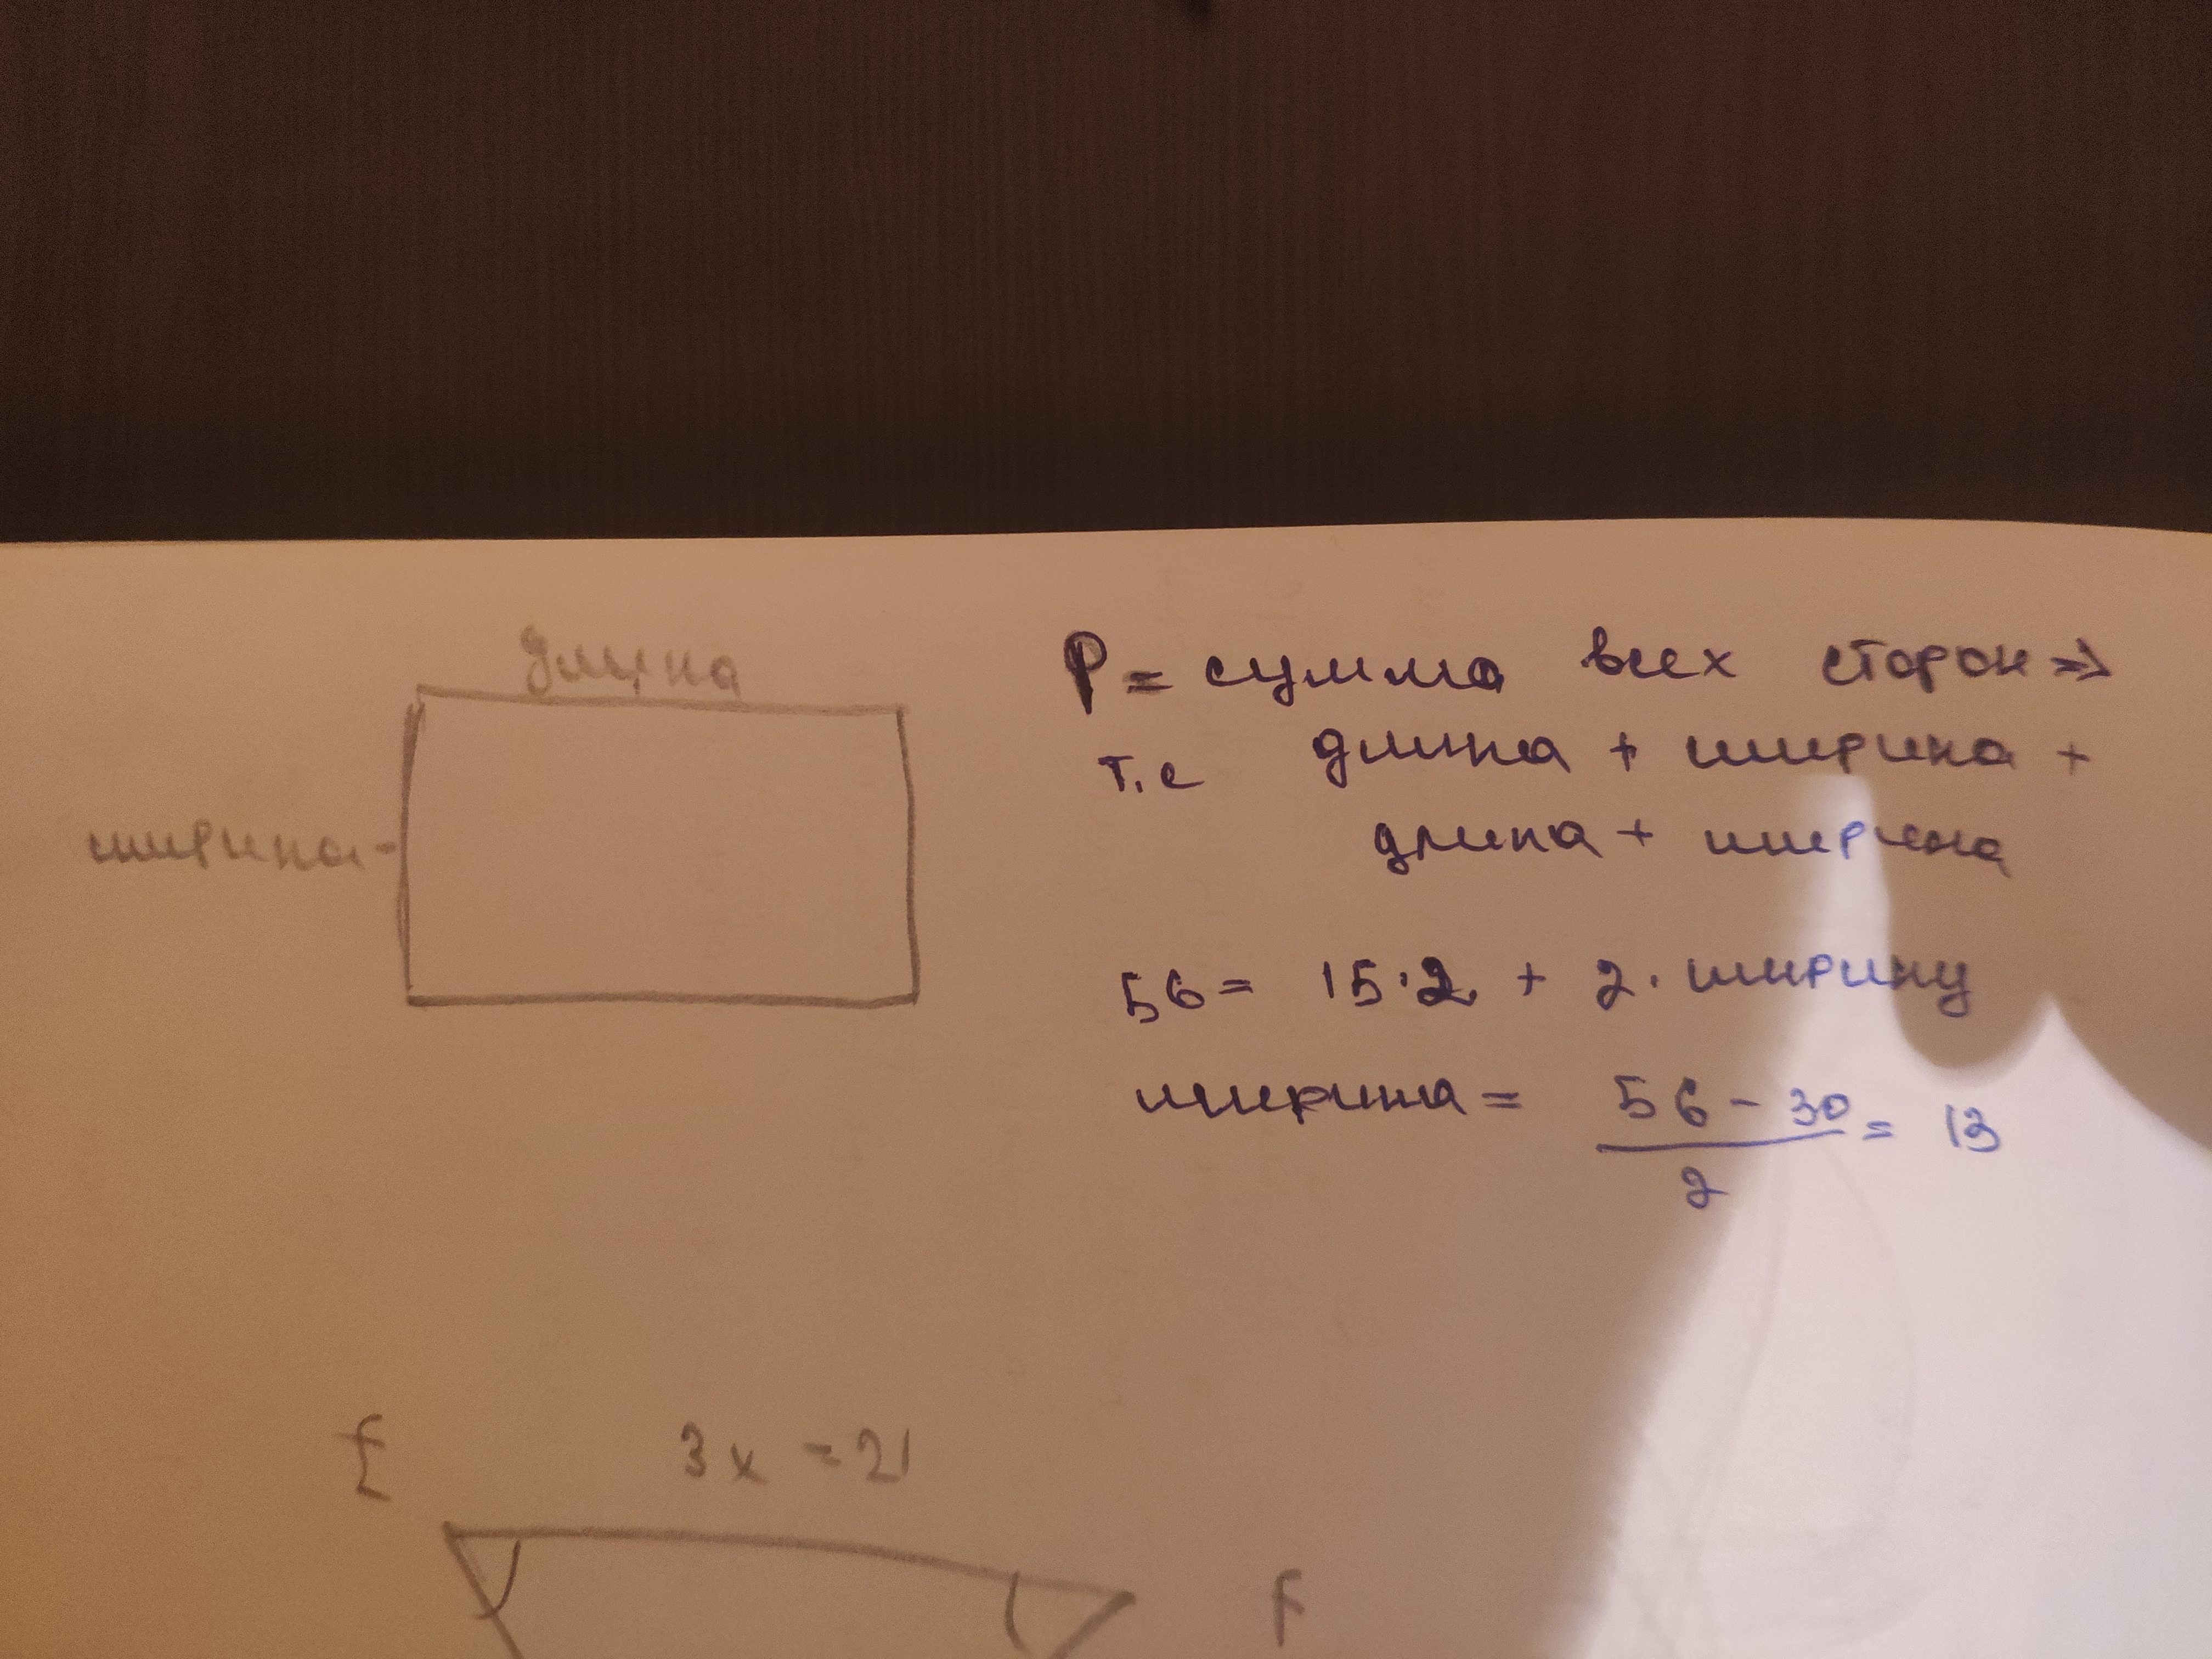 длина
ширина -
P = сумма всех сторон ⇒
т.е длина + ширина +
длина + ширина
56 = 15·2 + 2· ширину
ширина = 56 - 30 / 2 = 13
E 3x = 21
F